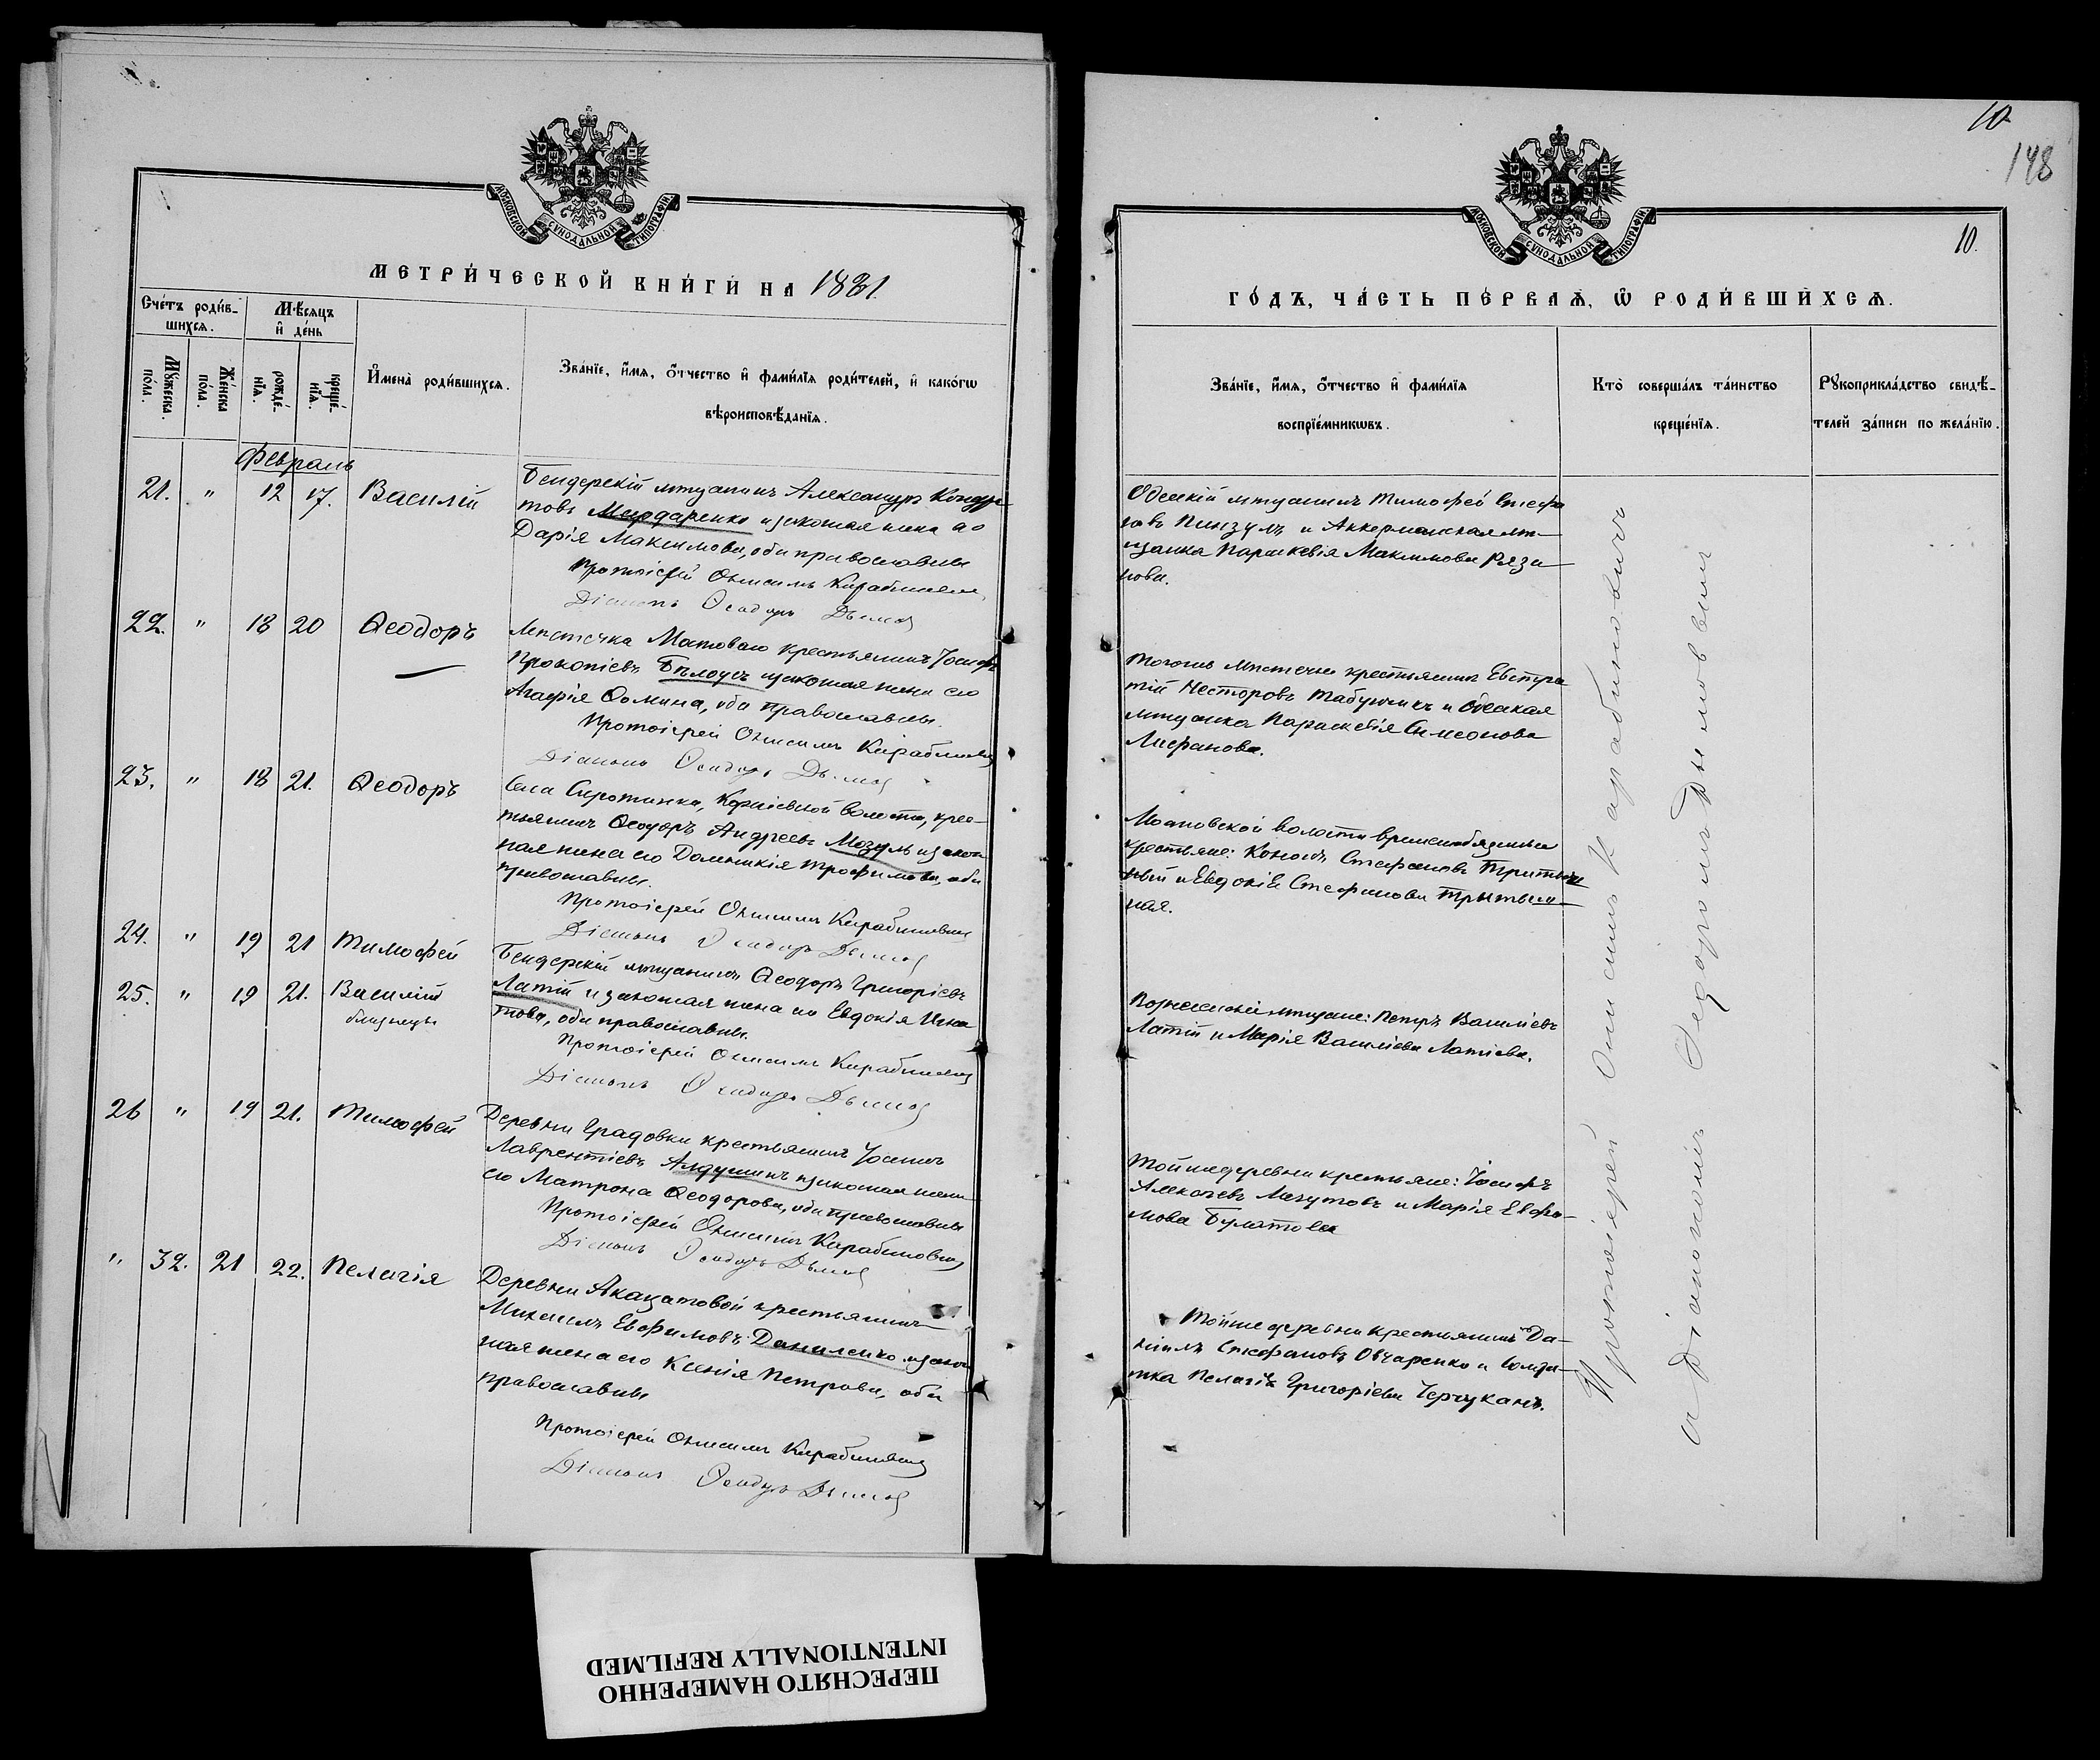 МОСКОВСКОЙ СѴНОДАЛЬНОЙ ТИПОГРАФІИ
МЕТРИ́ЧЕСКОЙ КНИ́ГИ НА 1881.
Сче́тъ роди́в-
шихсѧ.
Мѣ́сѧцъ
и҆ де́нь
Мꙋ́жеска
по́ла.
Же́нска
по́ла.
рожде́-
нїѧ.
креще́-
нїѧ.
И҆мена̀ роди́вшихсѧ.
Зва́нїе, и҆́мѧ, ѻ҆́тчество и҆ фами́лїѧ роди́телей, и҆ како́гѡ
вѣроисповѣ́данїѧ.
Февраль
21. " 12 17. Василій
Бендерскій мѣщанинъ Александръ Кондра
товъ и законная жена его
Дарія Максимова, оба православные
Протоіерей Онисимъ Карабиновичъ
Діаконъ Ѳеодоръ Дымов
22. " 18 20 Ѳеодоръ
Мѣстечка крестьянинъ Іосифъ
Прокопіевъ Бѣлоусъ и законная жена его
Агафія Ѳомина, оба православные.
Протоіерей Онисимъ Карабиновичъ
Діаконъ Ѳеодоръ Дымов
23. " 18 21. Ѳеодоръ
Села Сиротинка, волости, крес-
тьянинъ Ѳеодоръ Андреевъ Мозуль и закон
ная жена его Домникія Трофимова, оба
православные.
Протоіерей Онисимъ Карабиновичъ
Діаконъ Ѳеодоръ Дымов
24. " 19 21 Тимофей
25. " 19 21. Василій
близнецы
Бендерскій мѣщанинъ Ѳеодоръ Григоріевъ
Латій и законная жена его Евдокія Игна
това, оба православные.
Протоіерей Онисимъ Карабиновичъ
Діаконъ Ѳеодоръ Дымов
26 " 19 21. Тимофей
Деревни Градовки крестьянинъ
Лаврентіевъ и законная жена
его Матрона Ѳеодорова, оба православные
Протоіерей Онисимъ Карабиновичъ
Діаконъ Ѳеодоръ Дымов
" 32. 21 22. Пелагія
Деревни Акацатовой крестьянинъ
Михаилъ Евфимовъ Даниленко и закон
ная жена его Ксенія Петрова, оба
православные
Протоіерей Онисимъ Карабиновичъ
Діаконъ Ѳеодоръ Дымов
10
148
10.
МОСКОВСКОЙ СѴНОДАЛЬНОЙ ТИПОГРАФІИ
ГО́ДЪ, ЧА́СТЬ ПЕ́РВАѦ, Ѡ҆ РОДИ́ВШИХСѦ.
Зва́нїе, и҆́мѧ, ѻ҆́тчество и҆ фами́лїѧ
воспрїе́мникѡвъ.
Кто̀ соверша́лъ та́инство
креще́нїѧ.
Рꙋкоприкла́дство свидѣ́-
телей за́писи по жела́нїю.
Одесскій мѣщанинъ Тимофей Стефа
новъ Пинзулъ и Аккерманская мѣ-
щанка Параскевія Максимова Ряза
нова.
Тогоже мѣстечка крестьянинъ Евстра
тій Несторовъ и Одесская
мѣщанка Параскевія Симеонова
Лисфанова.
волости временнообязанные
крестьяне: Стефановъ
и Евдокія Стефанова
ная.
мѣщане: Петръ Василіевъ
Латій и Марія Василіева Латіева.
Той же деревни крестьяне: Іосифъ
Алексѣевъ и Марія Евфи-
мова Булатова
Той же деревни крестьянинъ Да-
ніилъ Стефановъ Овчаренко и солда-
тка Пелагія Григоріева Черчуканъ.
Протоіерей Онисимъ Карабиновичъ
съ Діакономъ Ѳеодоромъ Дымовымъ
ПЕРЕСНЯТО НАМЕРЕННО
INTENTIONALLY REFILMED